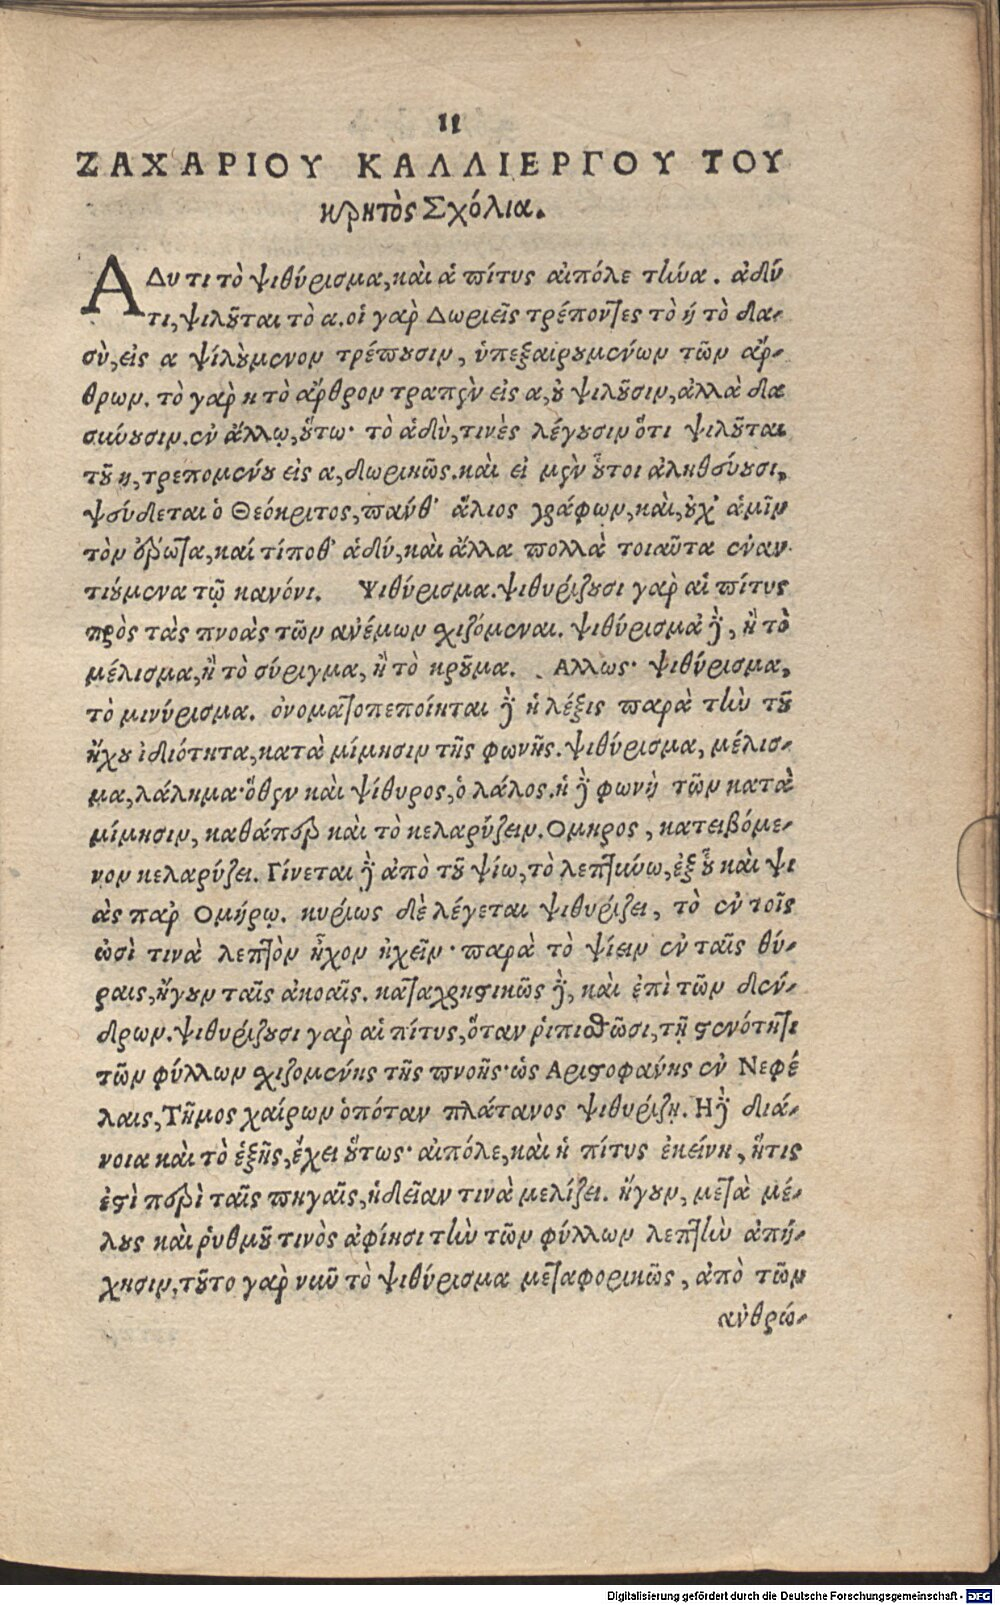 11
ΖΑΧΑΡΙΟΥ ΚΑΛΛΙΕΡΓΟΥ ΤΟΥ
κρητὸς Σχόλια.
Αδυ τι τὸ ψιθύρισμα, καὶ ἁ πίτυς αἰπόλε τήνα. ἁδύ
τι, ψιλοῦται τὸ α. οἱ γὰρ Δωριεῖς τρέποντες τὸ ἡ τὸ δα-
σὺ, εἰς α ψίλὸυμενον τρέπουσιν, ὑπεξαιρουμένων τῶν ἄρ-
θρων. τὸ γὰρ η τὸ ἄρθρον τραπὲν εἰς α, οὐ ψιλοῦσιν, ἀλλὰ δα
σύνουσιν. ἐν ἄλλῳ, οὕτω· τὸ ἁδὺ, τινὲς λέγουσιν ὅτι ψιλοῦται
τοῦ η, τρεπομένου εἰς α, δωρικῶς. καὶ εἰ μὲν οὗτοι ἀληθεύουσι,
ψεύδεται ὁ Θεόκριτος, πανθ' ἅλιος γράφων, καὶ, οὐχ' ἁμῖν
τὸν ἔρωτα, καί τίποθ' ἁδύ, καὶ ἄλλα πολλὰ τοιαῦτα ἐναν-
τιούμενα τῷ κανόνι. Ψιθύρισμα. ψιθυρίζουσι γὰρ αἱ πίτυς
πρὸς τὰς πνοὰς τῶν ἀνέμων σχιζόμεναι. ψιθύρισμα δὲ, ἢ τὸ
μέλισμα, ἢ τὸ σύριγμα, ἢ τὸ κροῦμα. Αλλως· ψιθύρισμα,
τὸ μινύρισμα. ὀνοματοπεποίηται δὲ ἡ λέξις παρὰ τὴν τοῦ
ἤχου ἰδιότητα, κατὰ μίμησιν τῆς φωνῆς. ψιθύρισμα, μέλισ-
μα, λάλημα· ὅθεν καὶ ψίθυρος, ὁ λάλος. ἡ δὲ φωνὴ τῶν κατὰ
μίμησιν, καθάπερ καὶ τὸ κελαρύζειν. Ομηρος, κατειβόμε-
νον κελαρύζει. Γίνεται δὲ ἀπὸ τοῦ ψίω, τὸ λεπτύνω, ἐξ οὗ καὶ ψι
ὰς παρ Ομήρῳ. κυρίως δὲ λέγεται ψιθυρίζει, τὸ ἐν τοῖς
ὠσὶ τινὰ λεπτὸν ἦχον ἠχεῖν· παρὰ τὸ ψίειν ἐν ταῖς θύ-
ραις, ἤγουν ταῖς ἀκοαῖς. καταχρηστικῶς δὲ, καὶ ἐπὶ τῶν δέν-
δρων. ψιθυρίζουσι γὰρ αἱ πίτυς, ὅταν ῥιπισθῶσι, τῇ στενότητι
τῶν φύλλων σχιζομένης τῆς πνοῆς· ὡς Αριστοφάνης ἐν Νεφέ
λαις, Τῆμος χαίρων ὁπόταν πλάτανος ψιθυρίζῃ. Η δὲ διά-
νοια καὶ τὸ ἑξῆς, ἔχει οὕτως· αἰπόλε, καὶ ἡ πίτυς ἐκείνη, ἥτις
ἐστὶ περὶ ταῖς πηγαῖς, ἡδεῖαν τινὰ μελίζει. ἤγουν, μετὰ μέ-
λους καὶ ῥυθμοῦ τινὸς ἀφίησι τὴν τῶν φύλλων λεπτὴν ἀπή-
χησιν, τοῦτο γὰρ νῦν τὸ ψιθύρισμα μεταφορικῶς, ἀπὸ τῶν
ἀνθρώ-
Digitalisierung gefördert durch die Deutsche Forschungsgemeinschaft - DFG